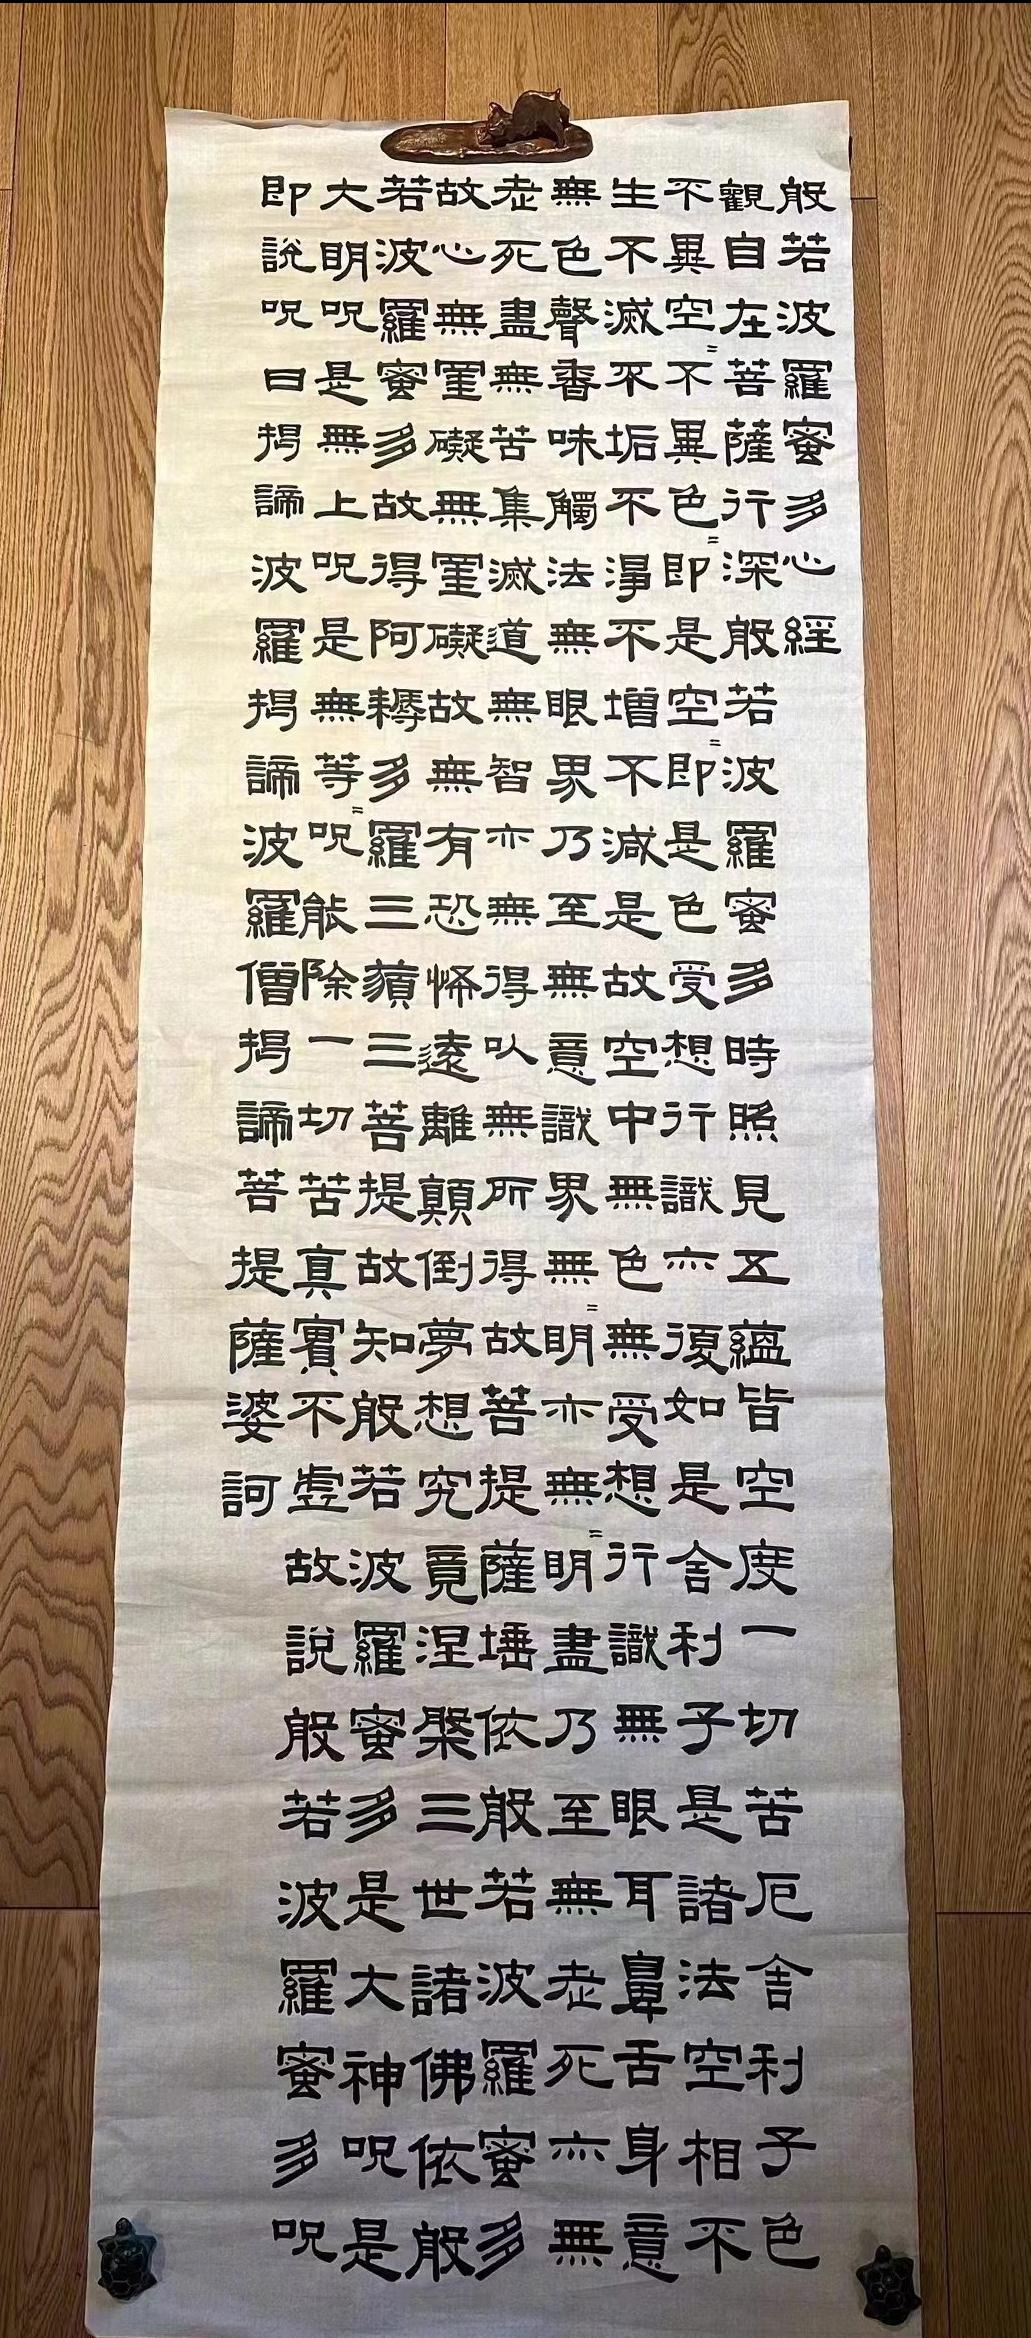 般若波羅蜜多心經
觀自在菩薩行深般若波羅蜜多時照見五蘊皆空度一切苦厄舍利子色
不異空〻不異色〻即是空〻即是色受想行識亦復如是舍利子是諸法空相不
生不滅不垢不淨不增不減是故空中無色無受想行識無眼耳鼻舌身意
無色聲香味觸法無眼界乃至無意識界無〻明亦無〻明盡乃至無老死亦無
老死盡無苦集滅道無智亦無得以無所得故菩提薩埵依般若波羅蜜多
故心無罣礙無罣礙故無有恐怖遠離顛倒夢想究竟涅槃三世諸佛依般
若波羅蜜多故得阿耨多羅三藐三菩提故知般若波羅蜜多是大神呪是
大明呪是無上呪是無等〻呪能除一切苦真實不虛故說般若波羅蜜多呪
即說呪曰揭諦波羅揭諦波羅僧揭諦菩提薩婆訶